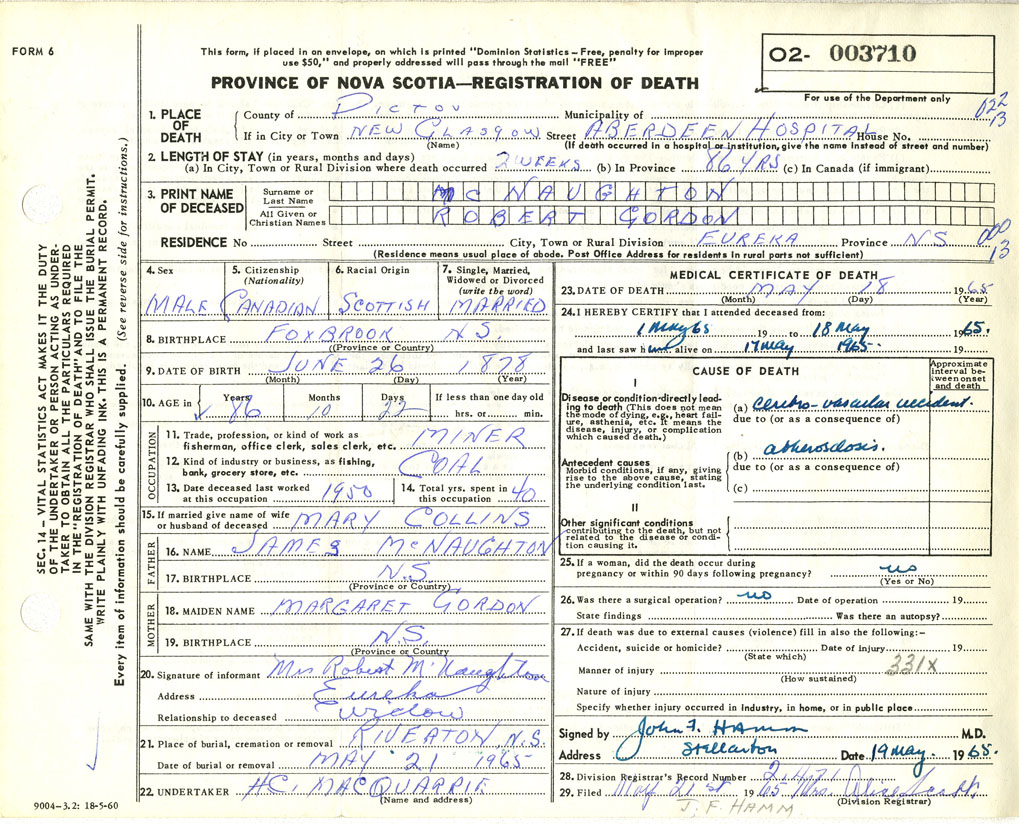 FORM 6
This form, if placed in an envelope, on which is printed "Dominion Statistics – Free, penalty for improper
use $50," and properly addressed will pass through the mail "FREE"
O2- 003710
PROVINCE OF NOVA SCOTIA—REGISTRATION OF DEATH
For use of the Department only
022
13
1. PLACE OF DEATH
County of PICTOU Municipality of
If in City or Town NEW GLASGOW Street ABERDEEN HOSPITAL House No.
(Name) (If death occurred in a hospital or institution, give the name instead of street and number)
2. LENGTH OF STAY (in years, months and days)
(a) In City, Town or Rural Division where death occurred 2 WEEKS (b) In Province 86 YRS (c) In Canada (if immigrant)
3. PRINT NAME OF DECEASED
Surname or Last Name MC NAUGHTON
All Given or Christian Names ROBERT GORDON
RESIDENCE No Street City, Town or Rural Division EUREKA Province NS
000
13
(Residence means usual place of abode. Post Office Address for residents in rural parts not sufficient)
4. Sex
MALE
5. Citizenship
(Nationality)
CANADIAN
6. Racial Origin
SCOTTISH
7. Single, Married,
Widowed or Divorced
(write the word)
MARRIED
8. BIRTHPLACE FOXBROOK N.S.
(Province or Country)
9. DATE OF BIRTH JUNE 26 1878
(Month) (Day) (Year)
10. AGE in
Years Months Days If less than one day old
86 10 22 hrs. or min.
OCCUPATION
11. Trade, profession, or kind of work as
fisherman, office clerk, sales clerk, etc. MINER
12. Kind of industry or business, as fishing,
bank, grocery store, etc. COAL
13. Date deceased last worked
at this occupation 1950
14. Total yrs. spent in
this occupation 40
15. If married give name of wife
or husband of deceased MARY COLLINS
FATHER
16. NAME JAMES MCNAUGHTON
17. BIRTHPLACE N.S.
(Province or Country)
MOTHER
18. MAIDEN NAME MARGARET GORDON
19. BIRTHPLACE N.S.
(Province or Country
20. Signature of informant Mrs Robert McNaughton
Address Eureka
Relationship to deceased Widow
21. Place of burial, cremation or removal RIVERTON N.S.
Date of burial or removal MAY 21 1965
22. UNDERTAKER H.C. MACQUARRIE
(Name and address)
9004–3.2: 18-5-60
MEDICAL CERTIFICATE OF DEATH
23. DATE OF DEATH MAY 18 1965
(Month) (Day) (Year)
24. I HEREBY CERTIFY that I attended deceased from:
1 May 65 19 to 18 May 1965.
and last saw him alive on 17 May 1965. 19
CAUSE OF DEATH
Approximate
interval be-
tween onset
and death
I
Disease or condition directly lead-
ing to death (This does not mean
the mode of dying, e.g., heart fail-
ure, asthenia, etc. It means the
disease, injury, or complication
which caused death.)
(a) cerebro-vascular accident.
due to (or as a consequence of)
Antecedent causes
Morbid conditions, if any, giving
rise to the above cause, stating
the underlying condition last.
(b) atherosclosis.
due to (or as a consequence of)
(c)
II
Other significant conditions
contributing to the death, but not
related to the disease or condi-
tion causing it.
25. If a woman, did the death occur during
pregnancy or within 90 days following pregnancy? no
(Yes or No)
26. Was there a surgical operation? no Date of operation 19
State findings Was there an autopsy?
27. If death was due to external causes (violence) fill in also the following:–
Accident, suicide or homicide? Date of injury 19
(State which)
Manner of injury 331X
(How sustained)
Nature of injury
Specify whether injury occurred in industry, in home, or in public place
Signed by John F. Hamm M.D.
Address Stellarton Date 19 May. 1965.
28. Division Registrar's Record Number
29. Filed May 21st 1965 Mrs.
(Division Registrar)
J. F. HAMM
SEC. 14 – VITAL STATISTICS ACT MAKES IT THE DUTY
OF THE UNDERTAKER OR PERSON ACTING AS UNDER-
TAKER TO OBTAIN ALL THE PARTICULARS REQUIRED
IN THE "REGISTRATION OF DEATH" AND TO FILE THE
SAME WITH THE DIVISION REGISTRAR WHO SHALL ISSUE THE BURIAL PERMIT.
WRITE PLAINLY WITH UNFADING INK. THIS IS A PERMANENT RECORD.
Every item of information should be carefully supplied. (See reverse side for instructions.)